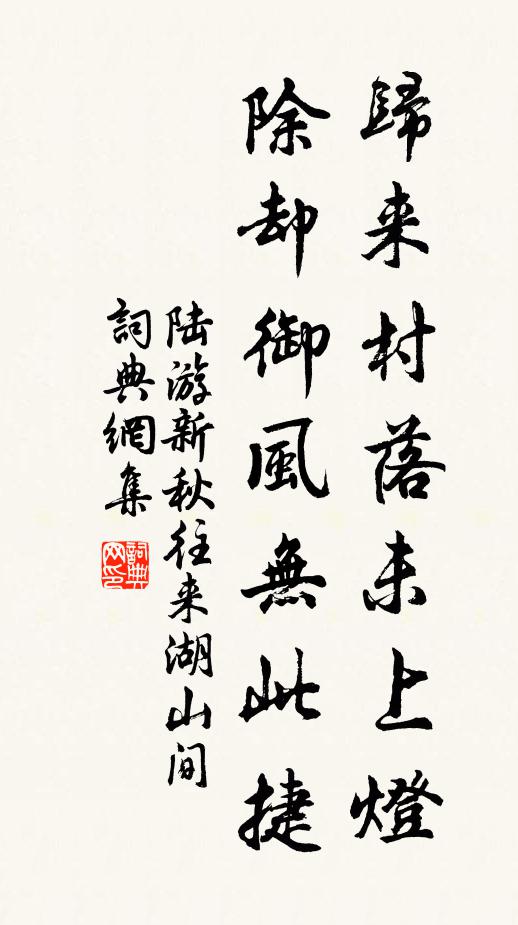 歸来村落未上燈
除却御風無此捷
陆游新秋往来湖山间
詞典網集
詞典网印